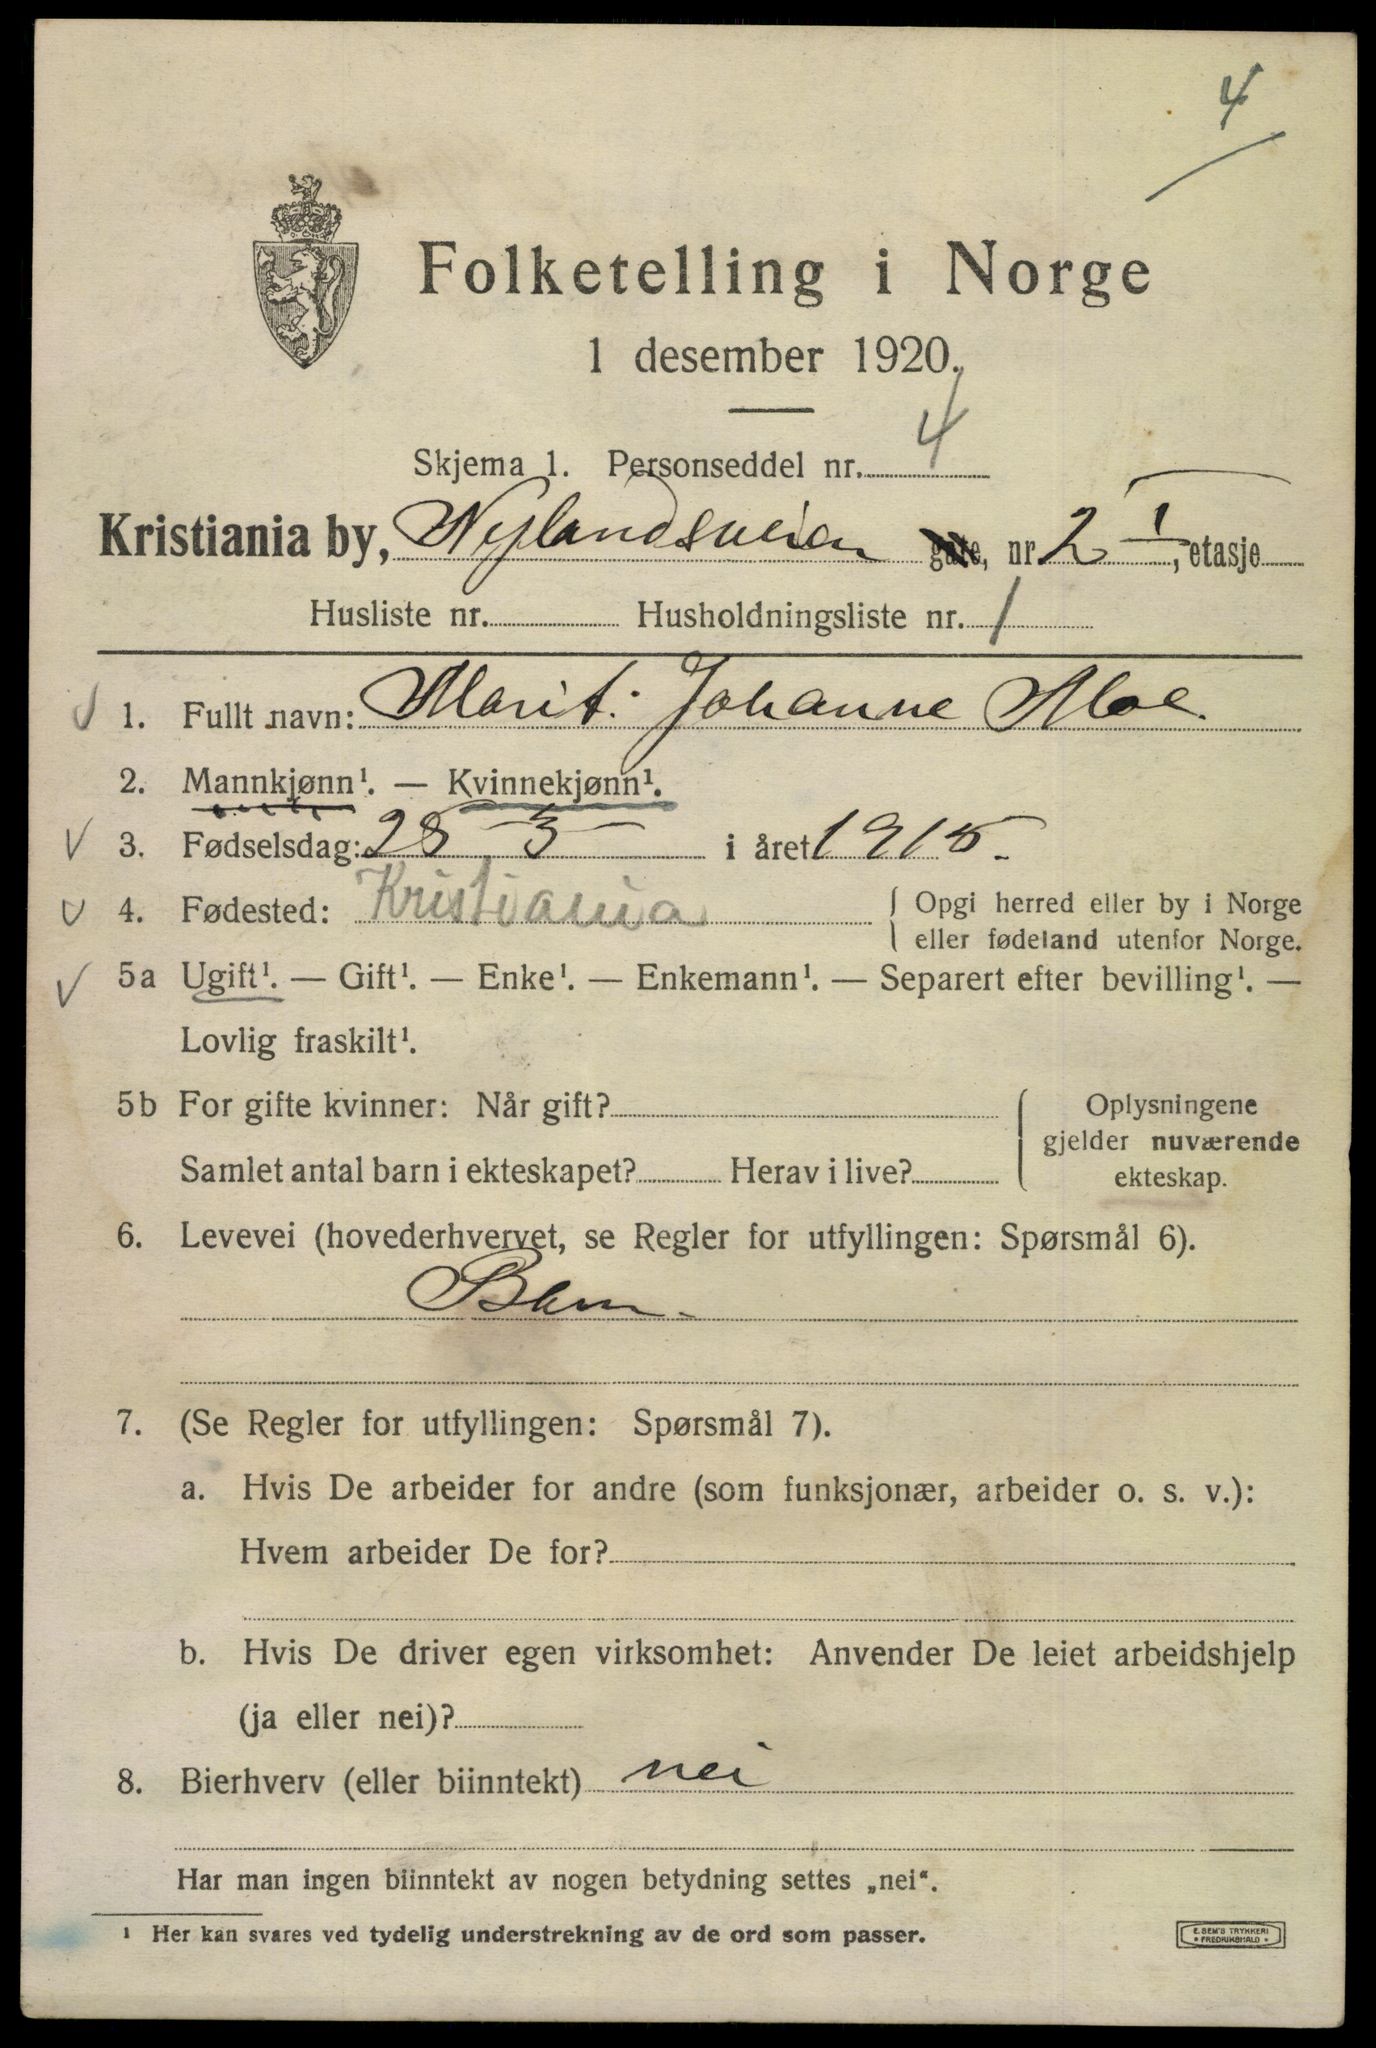 4
Folketelling i Norge
1 desember 1920.
Skjema 1. Personseddel nr. 4
Kristiania by, Nylandsveien gate, nr 2 I, etasje
Husliste nr. Husholdningsliste nr. 1
1. Fullt navn: Marit Johanne Moe.
2. Mannkjønn¹. — Kvinnekjønn¹.
3. Fødselsdag: 28 - 3 - i året 1915.
4. Fødested: Kristiania { Opgi herred eller by i Norge
eller fødeland utenfor Norge.
5a Ugift¹. — Gift¹. — Enke¹. — Enkemann¹. — Separert efter bevilling¹. —
Lovlig fraskilt¹.
5b For gifte kvinner: Når gift? { Oplysningene
gjelder nuværende
Samlet antal barn i ekteskapet? Herav i live? ekteskap.
6. Levevei (hovederhvervet, se Regler for utfyllingen: Spørsmål 6).
Barn.
7. (Se Regler for utfyllingen: Spørsmål 7).
a. Hvis De arbeider for andre (som funksjonær, arbeider o. s. v.):
Hvem arbeider De for?
b. Hvis De driver egen virksomhet: Anvender De leiet arbeidshjelp
(ja eller nei)?
8. Bierhverv (eller biinntekt) nei
Har man ingen biinntekt av nogen betydning settes „nei“.
¹ Her kan svares ved tydelig understrekning av de ord som passer.
E. SEM'S TRYKKERI
• FREDRIKSHALD •